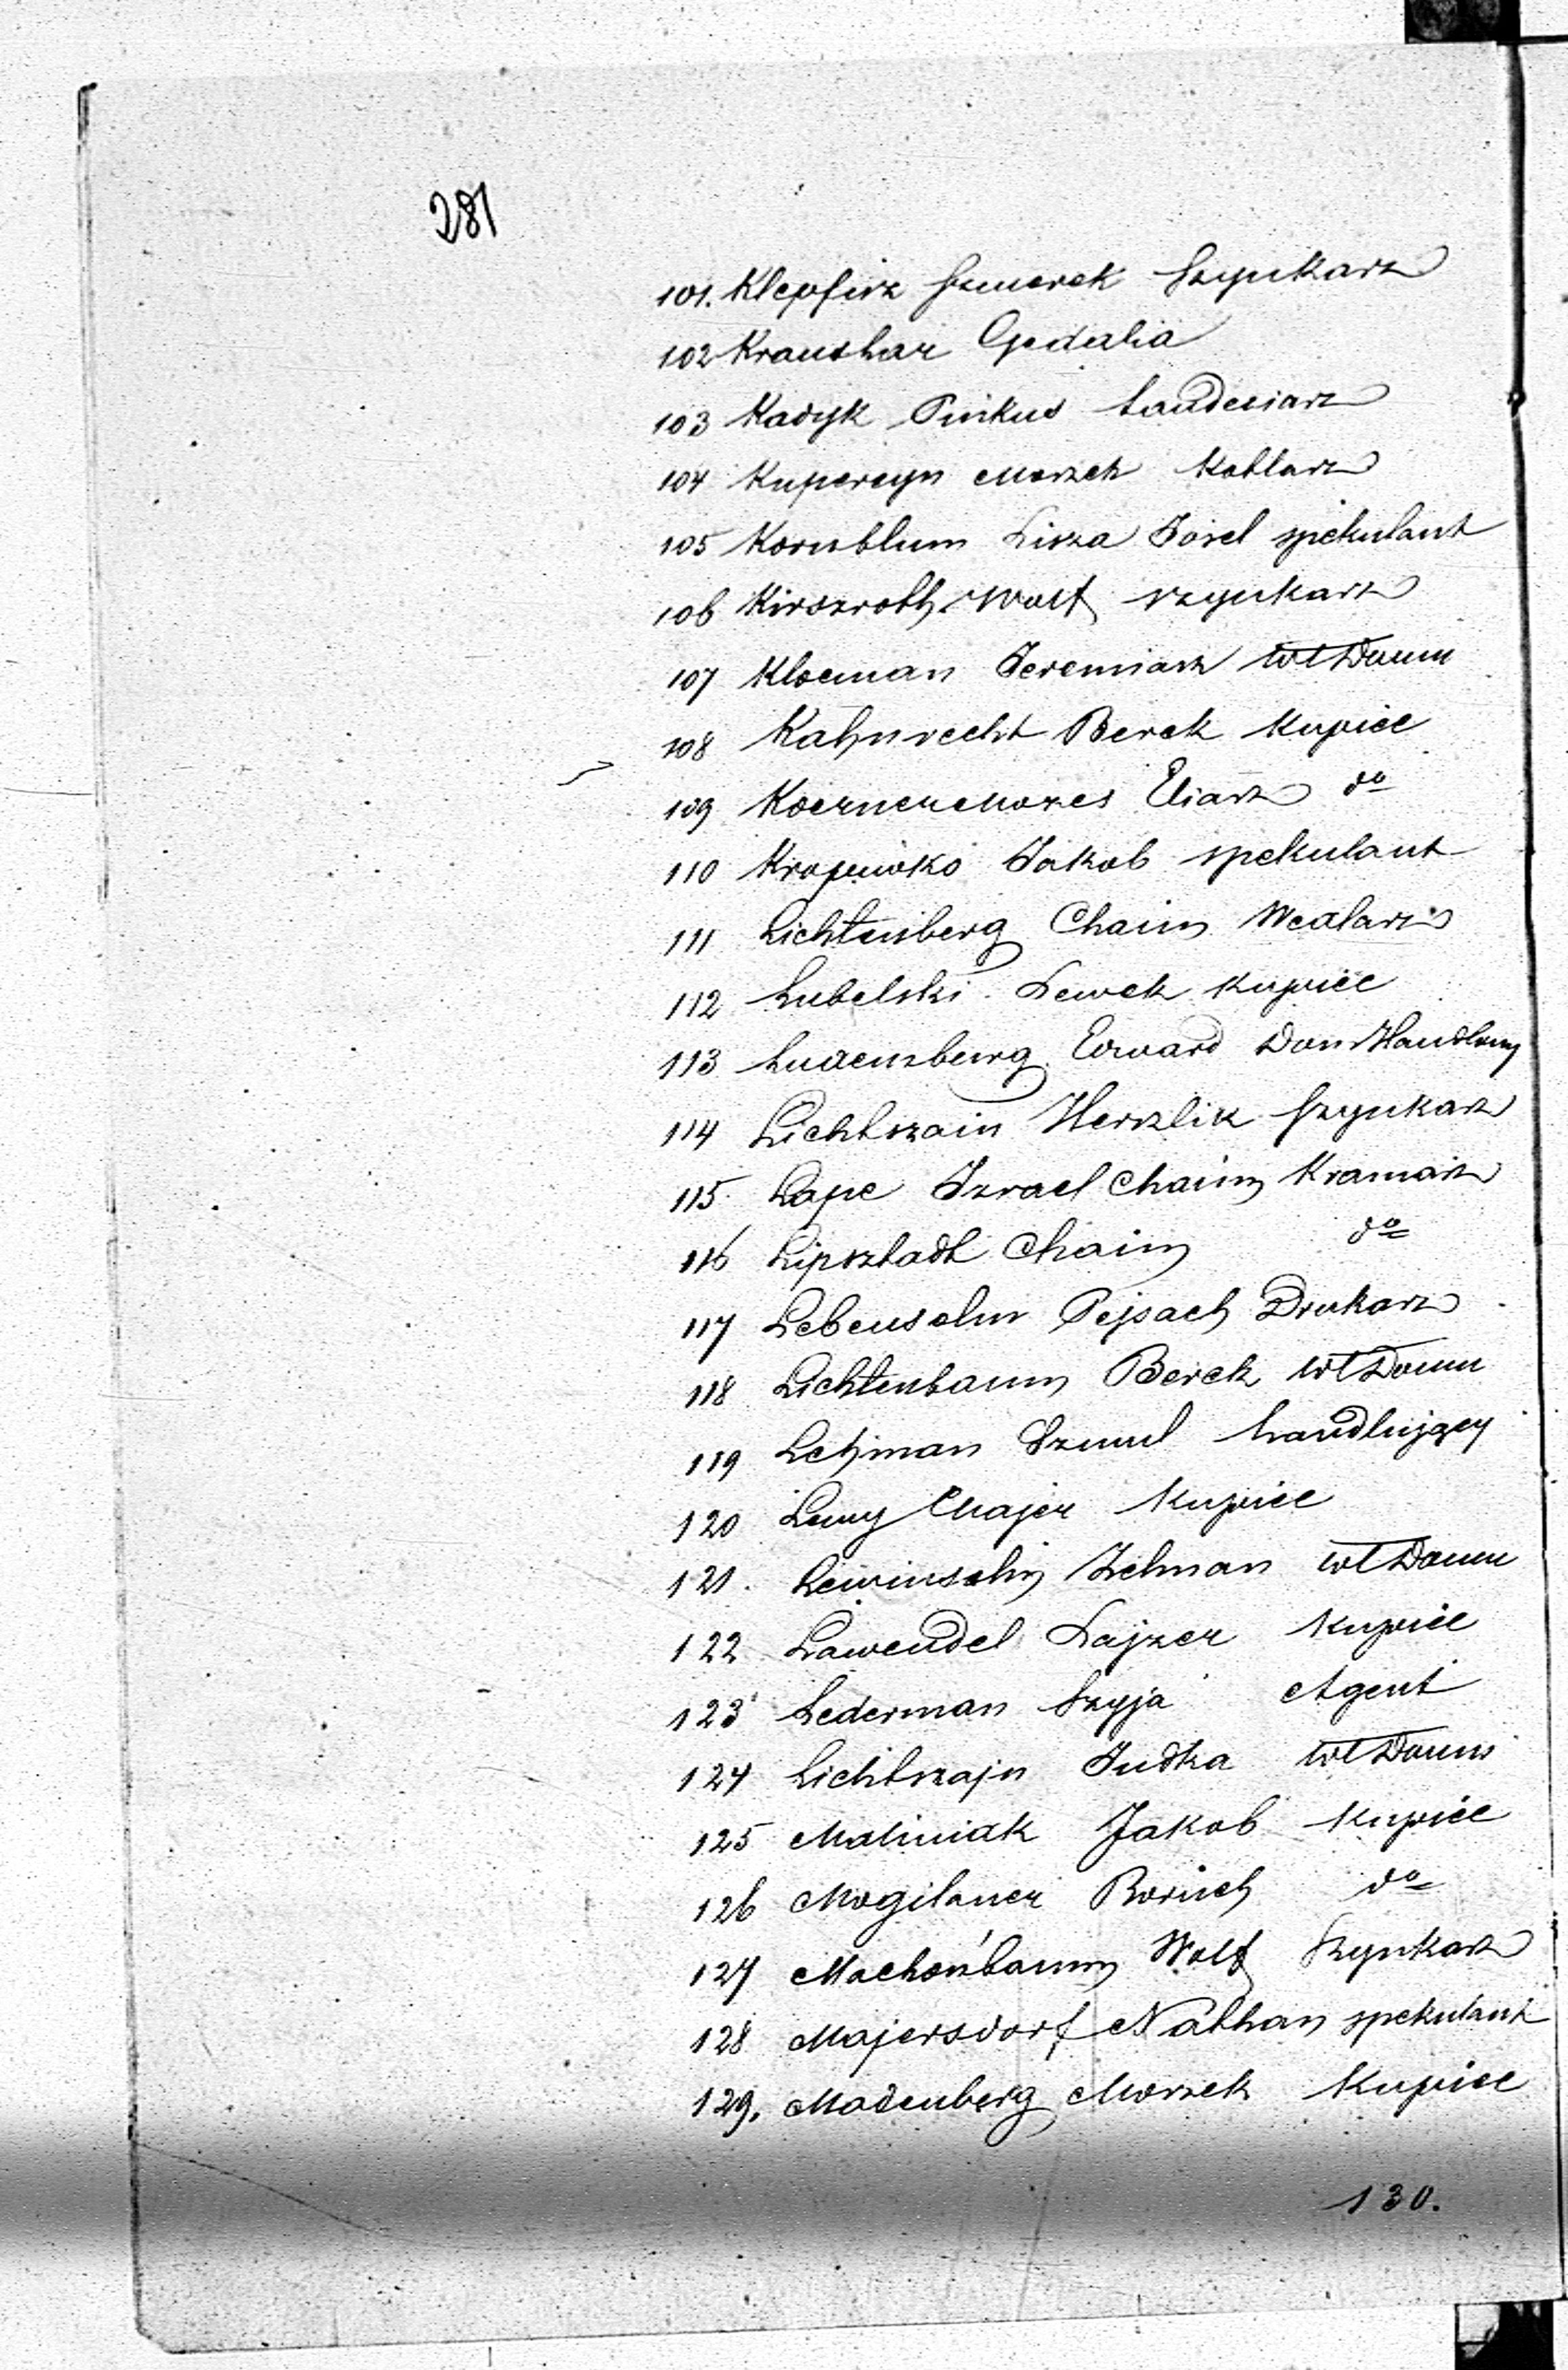 281
101. Klepfisz Szmerek Szynkarz
102 Kraushar Gedalia
103 Kadyk Pinkus
104 Kupercyn Moszek Kotlarz
105 Kornblum Liza Josel spekulant
106 Kirszroth Wolf szynkarz
107 Kloeman Jeremiasz Wł Domu
108 Kahnrecht Berek Kupiec
109 Koerner Mozes Eliasz do
110 Kropiwko Jakob spekulant
111 Lichtenberg Chaim
112 Lubelski Lewek Kupiec
113 Luxenburg Edward Dom Handlowy
114 Lichtszain Herszlik Szynkarz
115 Lape Izrael Chaim Kramarz
116 Lipsztadt Chaim do
117 Lebensohn Pejsach Drukarz
118 Lichtenbaum Berek Wł Domu
119 Lehman Szmul handlujący
120 Lewy Majer Kupiec
121. Lewinsohn Zelman Wł Domu
122 Lawendel Lajzer Kupiec
123 Lederman Szyja Agent
124 Lichtszajn Judka Wł Domu
125 Maliniak Jakob Kupiec
126 Mogilaner Boruch do
127 Machonbaum Wolf Szynkarz
128 Majersdorf Nathan spekulant
129. Madenberg Moszek Kupiec
130.